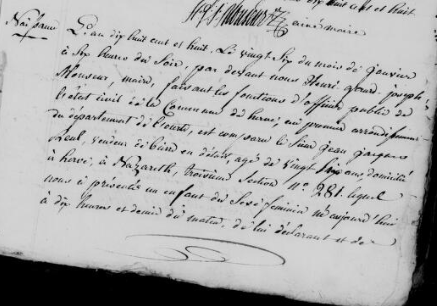 dix huit cent et huit.
ainé maire
Naissance
L'an dix huit cent et huit. Le vingt six du mois de janvier
à six heures du soir, par devant nous Henri joseph
maire, faisant les fonctions d'officier public de
l'état civil de la Commune de herve, premier arrondissement
du département de l'ourte, est comparu le Sieur jean
vendeur de bierre en détail, agé de vingt six ans, domicilié
à herve, à Nazareth, troisieme Section N.° 281. lequel
nous à présenté un enfant du Sexe féminin né aujourd'hui
à dix heures et demie du matin, de lui déclarant et de